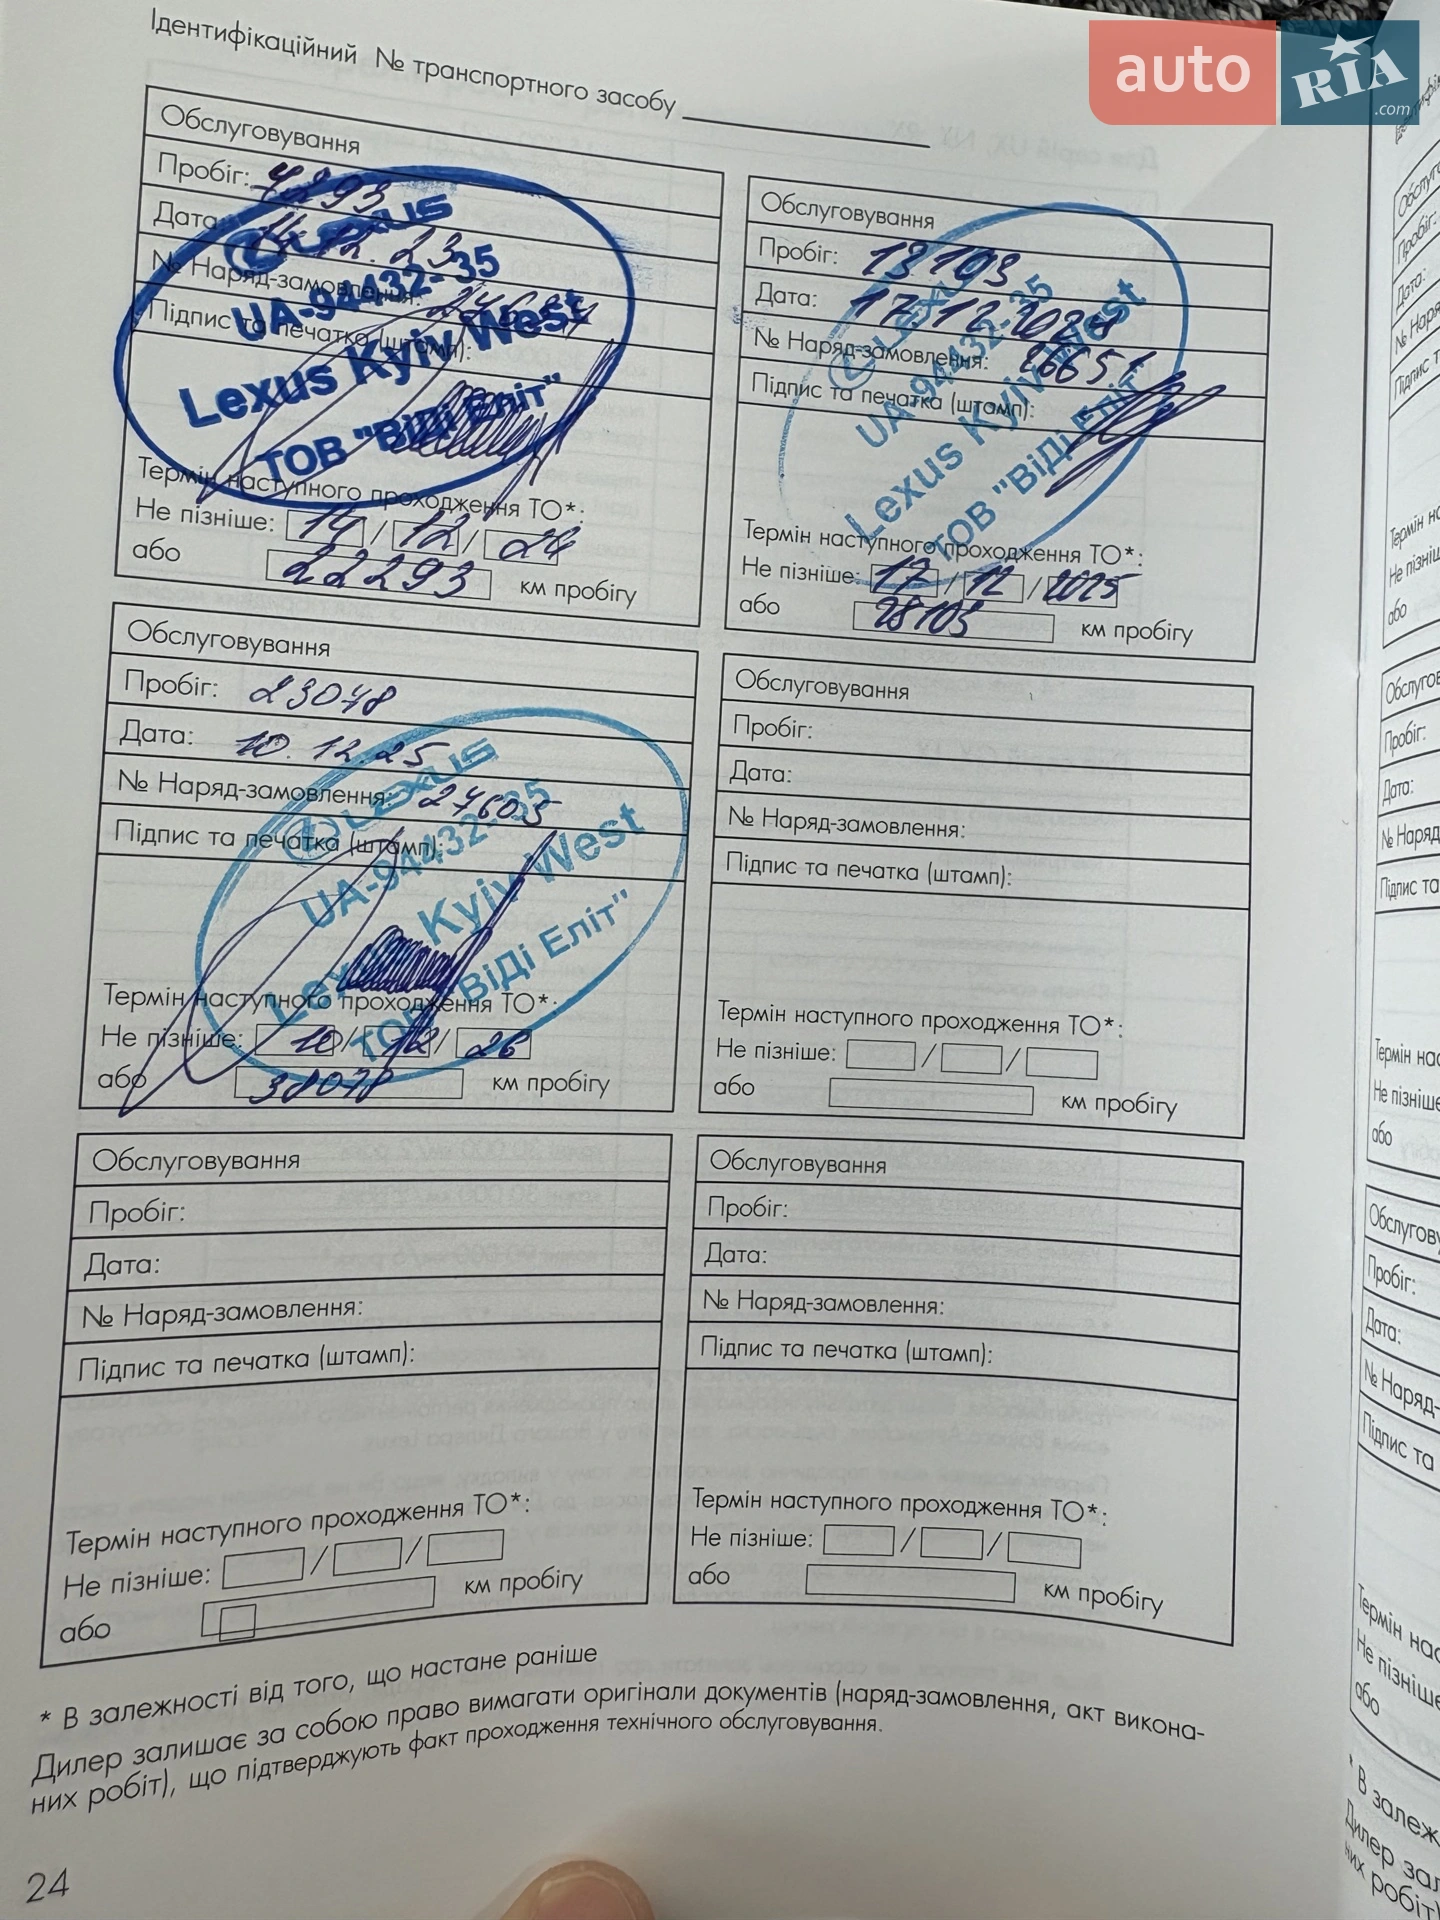 auto RIA .com
Ідентифікаційний № транспортного засобу
Обслуговування
Пробіг: 7293
Дата: 14.12.23
№ Наряд-замовлення:
Підпис та печатка (штамп):
LEXUS
UA-94432-35
Lexus Kyiv West
ТОВ "ВіДі Еліт"
Термін наступного проходження ТО*:
Не пізніше: 14 / 12 / 24
або 22293 км пробігу
Обслуговування
Пробіг: 13103
Дата: 17.12.2024
№ Наряд-замовлення: 26651
Підпис та печатка (штамп):
LEXUS
UA-94432-35
Lexus Kyiv West
ТОВ "ВіДі Еліт"
Термін наступного проходження ТО*:
Не пізніше: 17 / 12 / 2025
або 28103 км пробігу
Обслуговування
Пробіг: 23078
Дата: 10.12.25
№ Наряд-замовлення: 27605
Підпис та печатка (штамп):
LEXUS
UA-94432-35
Lexus Kyiv West
ТОВ "ВіДі Еліт"
Термін наступного проходження ТО*:
Не пізніше: 10 / 12 / 26
або 38078 км пробігу
Обслуговування
Пробіг:
Дата:
№ Наряд-замовлення:
Підпис та печатка (штамп):
Термін наступного проходження ТО*:
Не пізніше: / /
або км пробігу
Обслуговування
Пробіг:
Дата:
№ Наряд-замовлення:
Підпис та печатка (штамп):
Термін наступного проходження ТО*:
Не пізніше: / /
або км пробігу
Обслуговування
Пробіг:
Дата:
№ Наряд-замовлення:
Підпис та печатка (штамп):
Термін наступного проходження ТО*:
Не пізніше: / /
або км пробігу
* В залежності від того, що настане раніше
Дилер залишає за собою право вимагати оригінали документів (наряд-замовлення, акт викона-
них робіт), що підтверджують факт проходження технічного обслуговування.
24